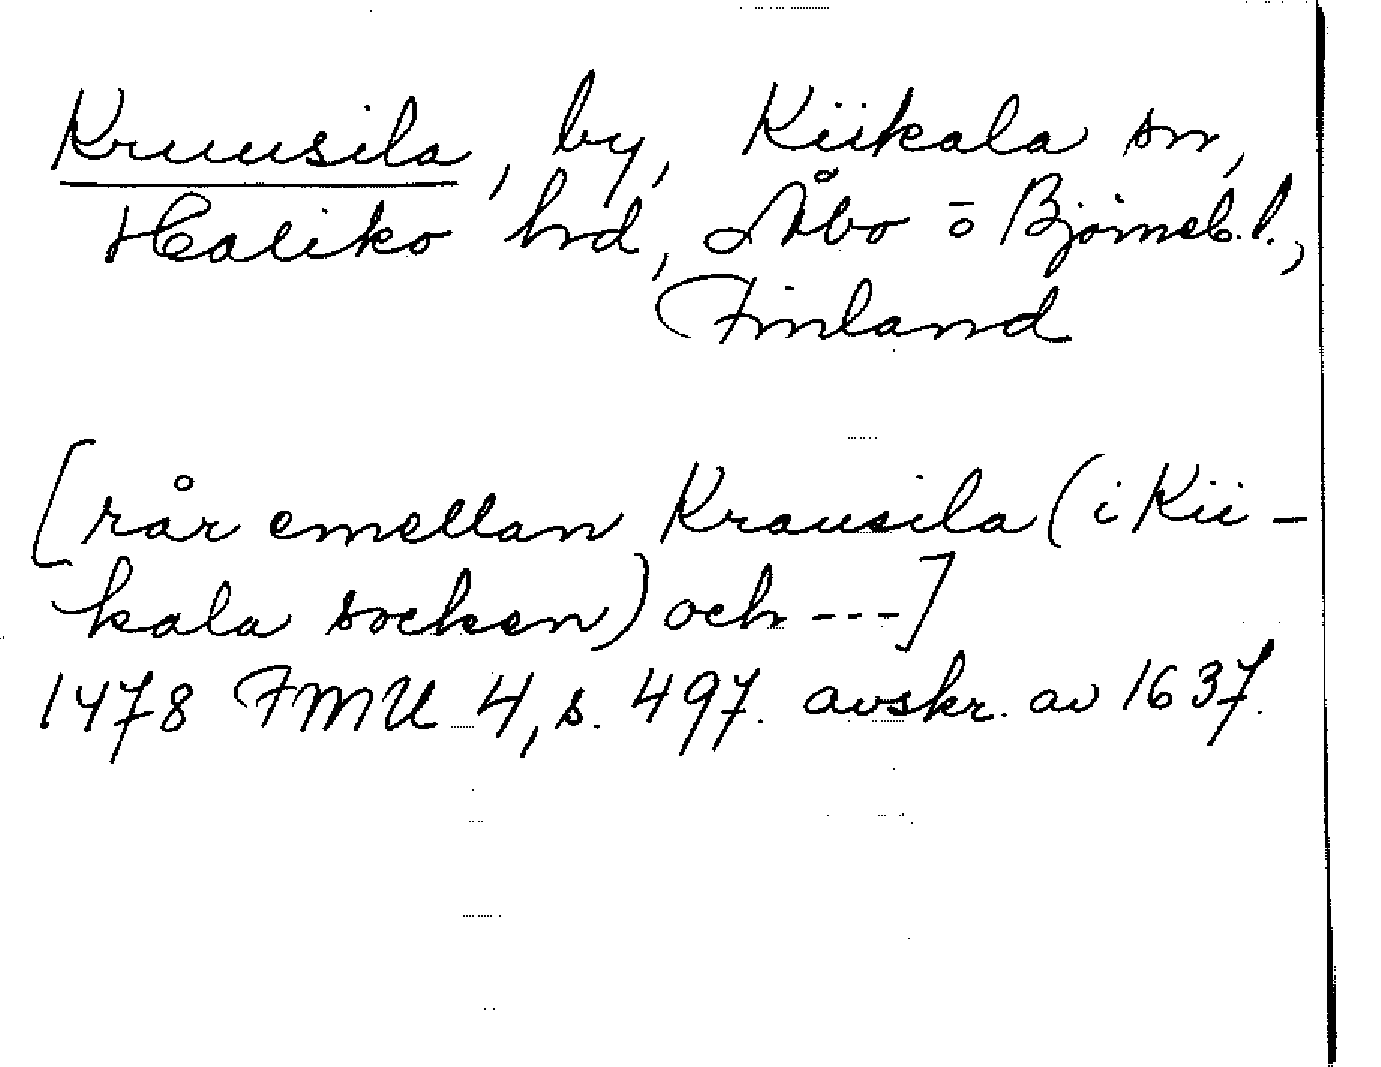 Kruusila, by, Kiikala sn,
Haliko hrd, Åbo o Björneb. l.,
Finland
[rår emellan Krausila (i Kii-
kala socken) och ---]
1478 FMU 4, s. 497. avskr. av 1637.